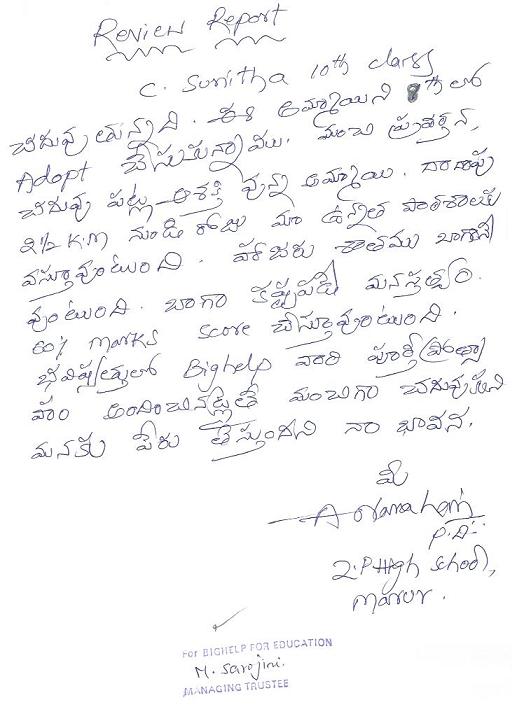 Review Report
C. Sunitha 10th class
చదువుతున్నది. ఈ అమ్మాయిని 8th లో
Adopt చేసుకున్నాము. మంచి ప్రవర్తన,
చదువు పట్ల ఆశక్తి వున్న అమ్మాయి. దాదాపు
2½ K.M నుండి రోజు మా ఉన్నత పాఠశాలకు
వస్తూవుంటుంది. హాజరు శాతము బాగానే
వుంటుంది. బాగా కష్టపడే మనస్తత్వం.
60% Marks Score చేస్తూవుంటుంది.
భవిష్యత్తులో Bighelp వారి పూర్తి ప్రోత్సా
హం అందించినట్లైతే మంచిగా చదువుకుని
మనకు పేరు తెస్తుందని నా భావన.
మీ
P.D.
Z.P High School,
For BIGHELP FOR EDUCATION
M. Sarojini.
MANAGING TRUSTEE